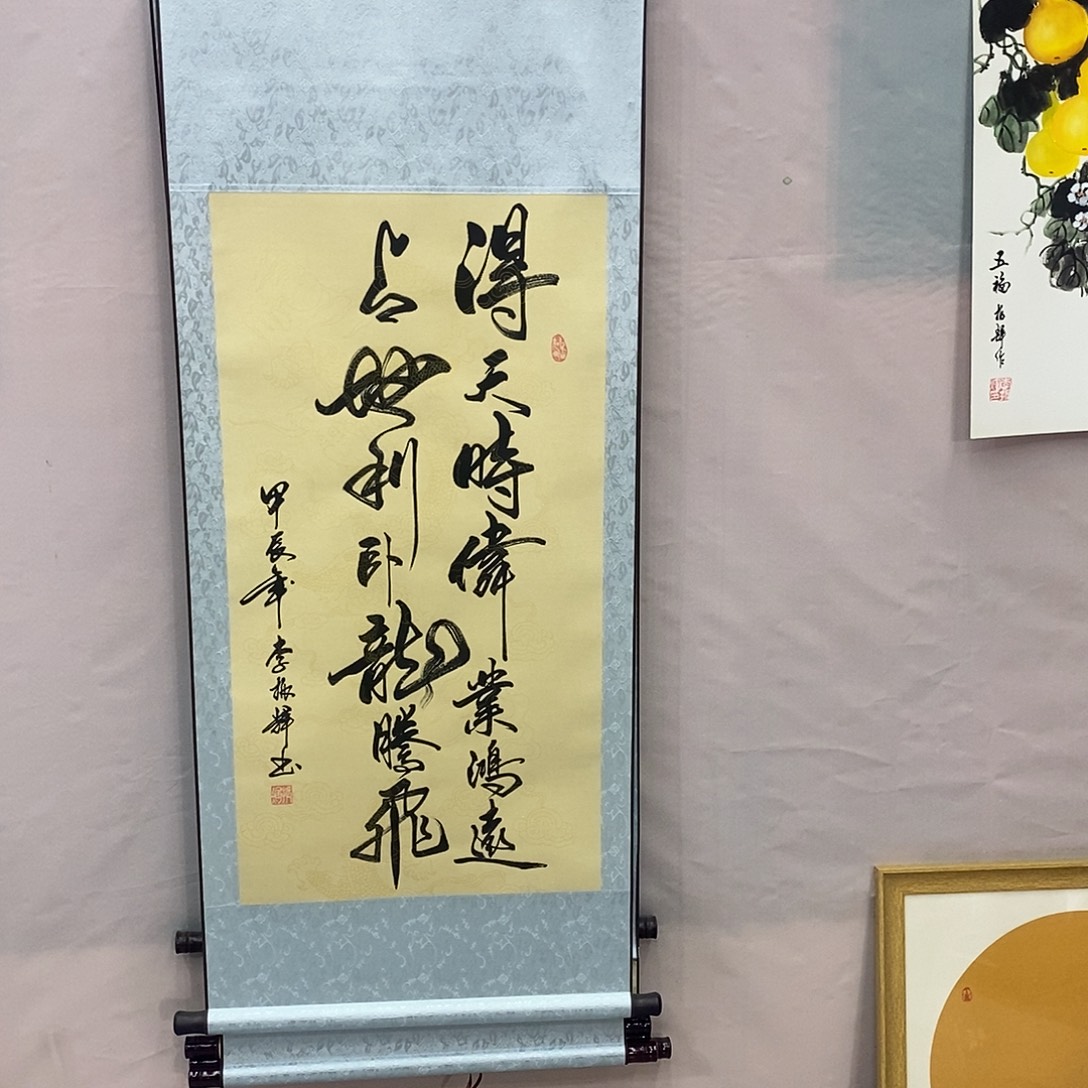 得天時偉業鴻遠
占地利卧龍騰飛
甲辰年李振輝书
五福